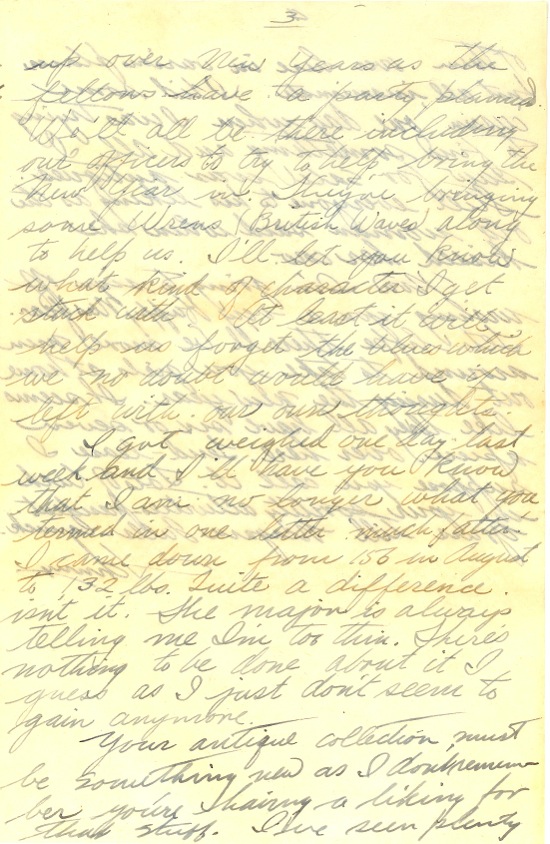 3
up over New Years as the
fellows have a party planned.
We'll all be there including
our officers to try to help bring the
New Year in. They're bringing
some Wrens (British Waves) along
to help us. I'll let you know
what kind of character I get
stuck with. At least it will
help us forget the blues which
we no doubt would have if
left with our own thoughts.
I got weighed one day last
week and I'll have you know
that I am no longer what you
termed in one letter "much fatter."
I came down from 156 in August
to 132 lbs. Quite a difference
isn't it. The major is always
telling me I'm too thin. There's
nothing to be done about it I
guess as I just don't seem to
gain anymore.
Your antique collection must
be something new as I don't remem-
ber you're having a liking for
that stuff. I've seen plenty